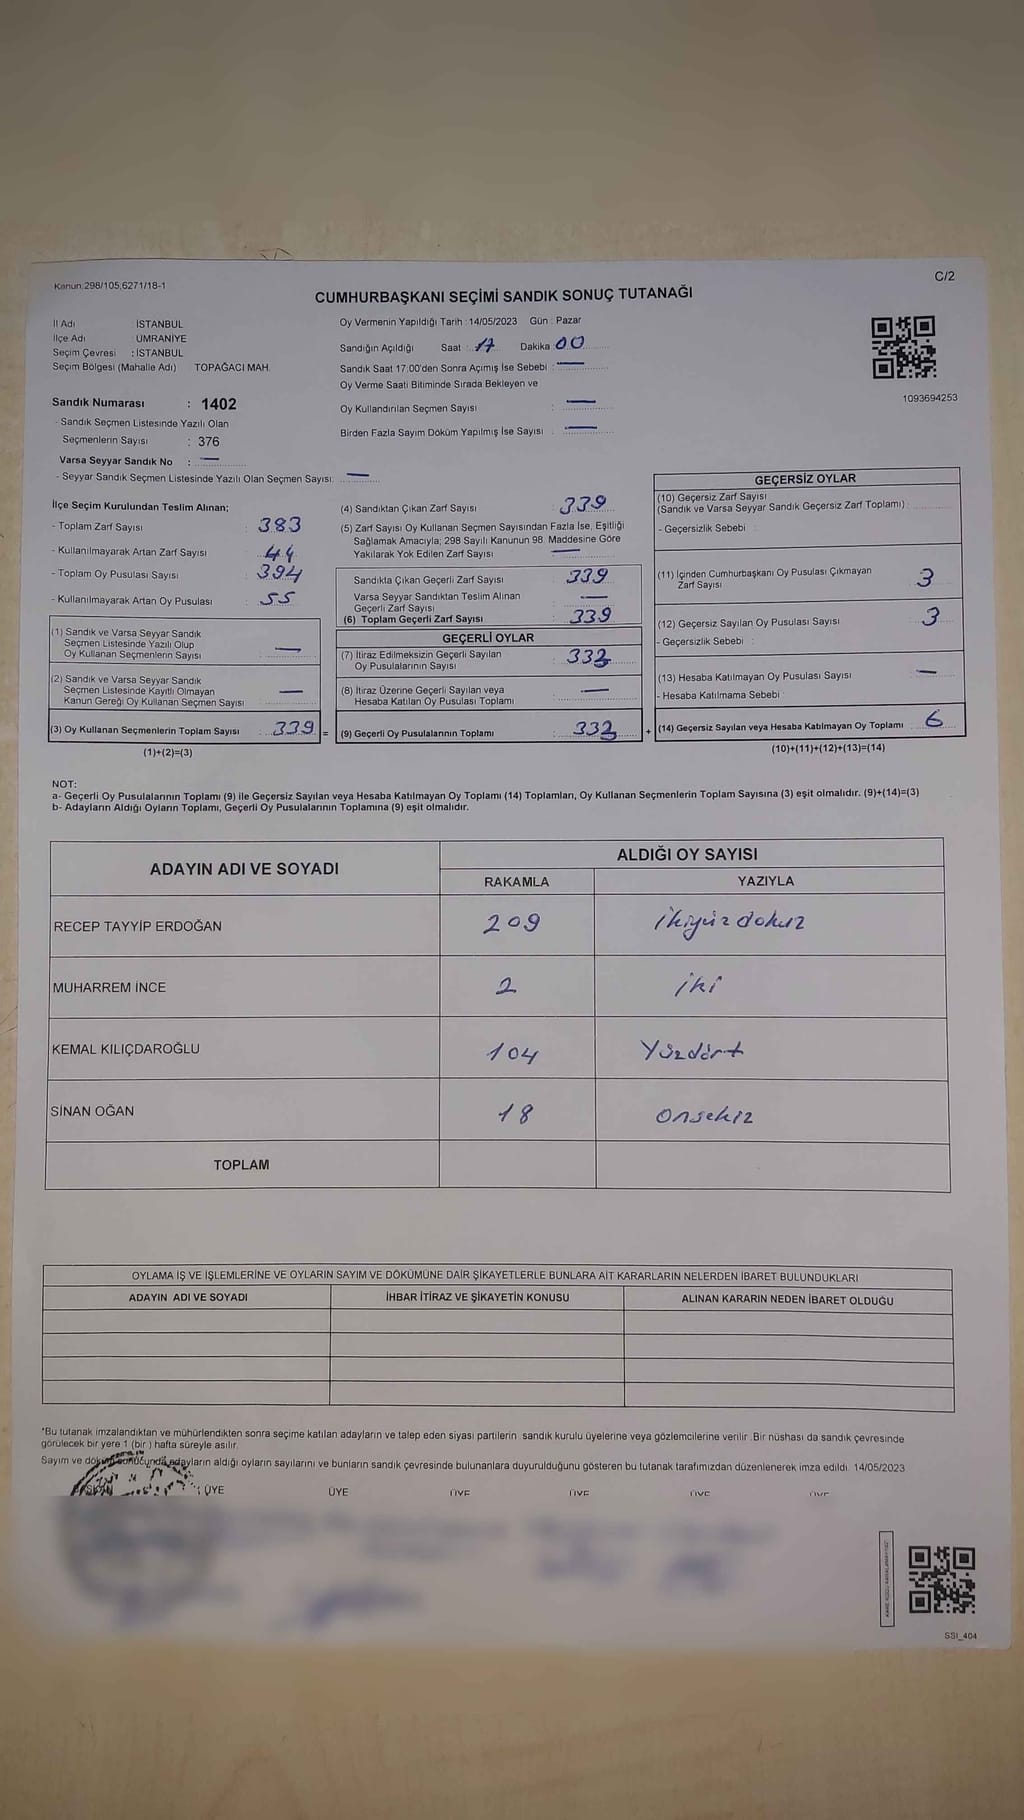 Kanun.298/105,6271/18-1
C/2
CUMHURBAŞKANI SEÇİMİ SANDIK SONUÇ TUTANAĞI
İl Adı : İSTANBUL
İlçe Adı : ÜMRANİYE
Seçim Çevresi : İSTANBUL
Seçim Bölgesi (Mahalle Adı) TOPAĞACI MAH.
Sandık Numarası : 1402
- Sandık Seçmen Listesinde Yazılı Olan
Seçmenlerin Sayısı : 376
Varsa Seyyar Sandık No : —
- Seyyar Sandık Seçmen Listesinde Yazılı Olan Seçmen Sayısı: —
Oy Vermenin Yapıldığı Tarih :14/05/2023 Gün : Pazar
Sandığın Açıldığı Saat : 17 Dakika 00
Sandık Saat 17:00'den Sonra Açımış İse Sebebi : —
Oy Verme Saati Bitiminde Sırada Bekleyen ve
Oy Kullandırılan Seçmen Sayısı : —
Birden Fazla Sayım Döküm Yapılmış İse Sayısı : —
1093694253
İlçe Seçim Kurulundan Teslim Alınan;
- Toplam Zarf Sayısı : 383
- Kullanılmayarak Artan Zarf Sayısı : 44
- Toplam Oy Pusulası Sayısı : 394
- Kullanılmayarak Artan Oy Pusulası : 55
(1) Sandık ve Varsa Seyyar Sandık
Seçmen Listesinde Yazılı Olup
Oy Kullanan Seçmenlerin Sayısı : —
(2) Sandık ve Varsa Seyyar Sandık
Seçmen Listesinde Kayıtlı Olmayan
Kanun Gereği Oy Kullanan Seçmen Sayısı : —
(3) Oy Kullanan Seçmenlerin Toplam Sayısı : 339 =
(1)+(2)=(3)
(4) Sandıktan Çıkan Zarf Sayısı : 339
(5) Zarf Sayısı Oy Kullanan Seçmen Sayısından Fazla İse, Eşitliği
Sağlamak Amacıyla; 298 Sayılı Kanunun 98. Maddesine Göre
Yakılarak Yok Edilen Zarf Sayısı : —
Sandıkla Çıkan Geçerli Zarf Sayısı : 339
Varsa Seyyar Sandıktan Teslim Alınan
Geçerli Zarf Sayısı : —
(6) Toplam Geçerli Zarf Sayısı : 339
GEÇERLİ OYLAR
(7) İtiraz Edilmeksizin Geçerli Sayılan
Oy Pusulalarının Sayısı : 333
(8) İtiraz Üzerine Geçerli Sayılan veya
Hesaba Katılan Oy Pusulası Toplamı : —
(9) Geçerli Oy Pusulalarının Toplamı : 333 +
GEÇERSİZ OYLAR
(10) Geçersiz Zarf Sayısı
(Sandık ve Varsa Seyyar Sandık Geçersiz Zarf Toplamı) :
- Geçersizlik Sebebi :
(11) İçinden Cumhurbaşkanı Oy Pusulası Çıkmayan
Zarf Sayısı : 3
(12) Geçersiz Sayılan Oy Pusulası Sayısı : 3
- Geçersizlik Sebebi :
(13) Hesaba Katılmayan Oy Pusulası Sayısı : —
- Hesaba Katılmama Sebebi :
(14) Geçersiz Sayılan veya Hesaba Katılmayan Oy Toplamı : 6
(10)+(11)+(12)+(13)=(14)
NOT:
a- Geçerli Oy Pusulalarının Toplamı (9) ile Geçersiz Sayılan veya Hesaba Katılmayan Oy Toplamı (14) Toplamları, Oy Kullanan Seçmenlerin Toplam Sayısına (3) eşit olmalıdır. (9)+(14)=(3)
b- Adayların Aldığı Oyların Toplamı, Geçerli Oy Pusulalarının Toplamına (9) eşit olmalıdır.
ADAYIN ADI VE SOYADI
ALDIĞI OY SAYISI
RAKAMLA YAZIYLA
RECEP TAYYİP ERDOĞAN 209 ikiyüzdokuz
MUHARREM İNCE 2 iki
KEMAL KILIÇDAROĞLU 104 Yüzdört
SİNAN OĞAN 18 onsekiz
TOPLAM
OYLAMA İŞ VE İŞLEMLERİNE VE OYLARIN SAYIM VE DÖKÜMÜNE DAİR ŞİKAYETLERLE BUNLARA AİT KARARLARIN NELERDEN İBARET BULUNDUKLARI
ADAYIN ADI VE SOYADI İHBAR İTİRAZ VE ŞİKAYETİN KONUSU ALINAN KARARIN NEDEN İBARET OLDUĞU
*Bu tutanak imzalandıktan ve mühürlendikten sonra seçime katılan adayların ve talep eden siyasi partilerin sandık kurulu üyelerine veya gözlemcilerine verilir. Bir nüshası da sandık çevresinde
görülecek bir yere 1 (bir ) hafta süreyle asılır.
Sayım ve döküm sonucunda adayların aldığı oyların sayılarını ve bunların sandık çevresinde bulunanlara duyurulduğunu gösteren bu tutanak tarafımızdan düzenlenerek imza edildi. 14/05/2023
ÜYE ÜYE ÜYE ÜYE ÜYE ÜYE
SSI_404